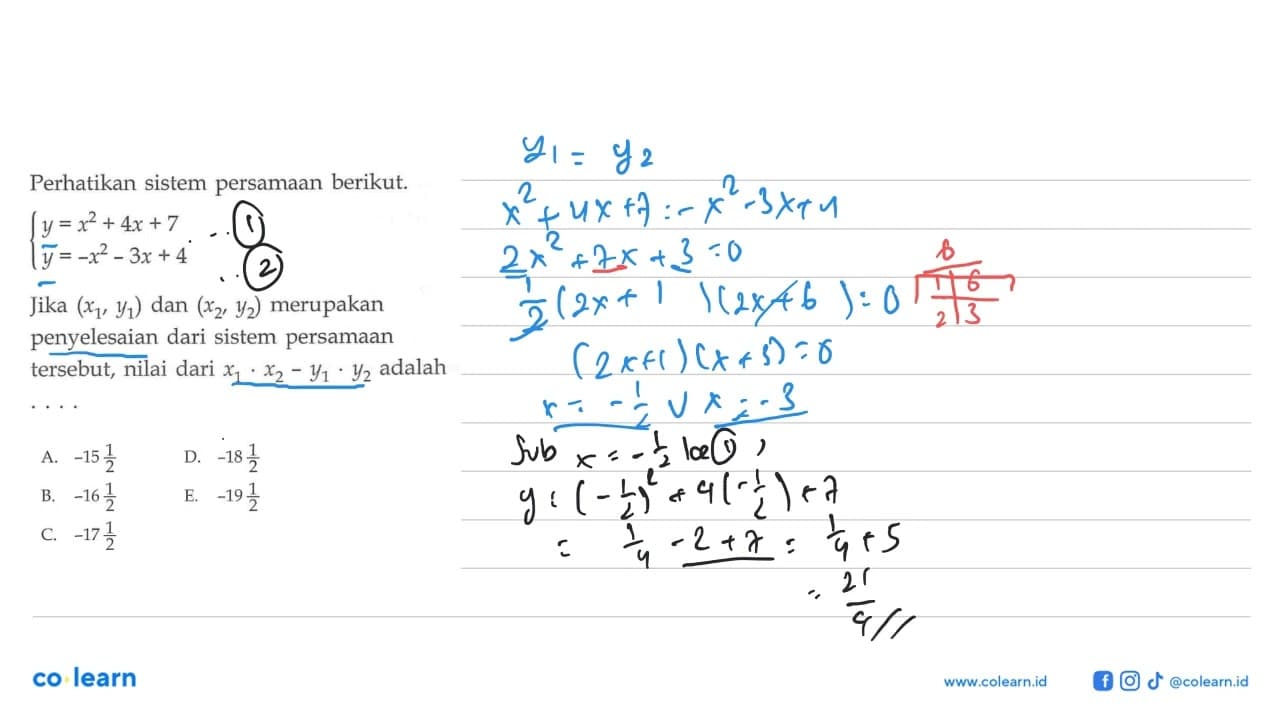 Perhatikan sistem persamaan berikut.
y = x² + 4x + 7 - - ①
y = -x² - 3x + 4 . . ②
Jika (x₁, y₁) dan (x₂, y₂) merupakan
penyelesaian dari sistem persamaan
tersebut, nilai dari x₁ · x₂ - y₁ · y₂ adalah
. . . .
A. -15 1/2 D. -18 1/2
B. -16 1/2 E. -19 1/2
C. -17 1/2
y₁ = y₂
x² + 4x + 7 = -x² - 3x + 4
2x² + 7x + 3 = 0
1/2 (2x + 1 )(2x + 6 ) = 0
6
1 6
2 3
(2x+1)(x+3) = 0
x = -1/2 V x = -3
Sub x = -1/2 ke ① ,
y = (-1/2)² + 4(-1/2) + 7
= 1/4 - 2 + 7 = 1/4 + 5
= 21/4 //
co learn
www.colearn.id
@colearn.id